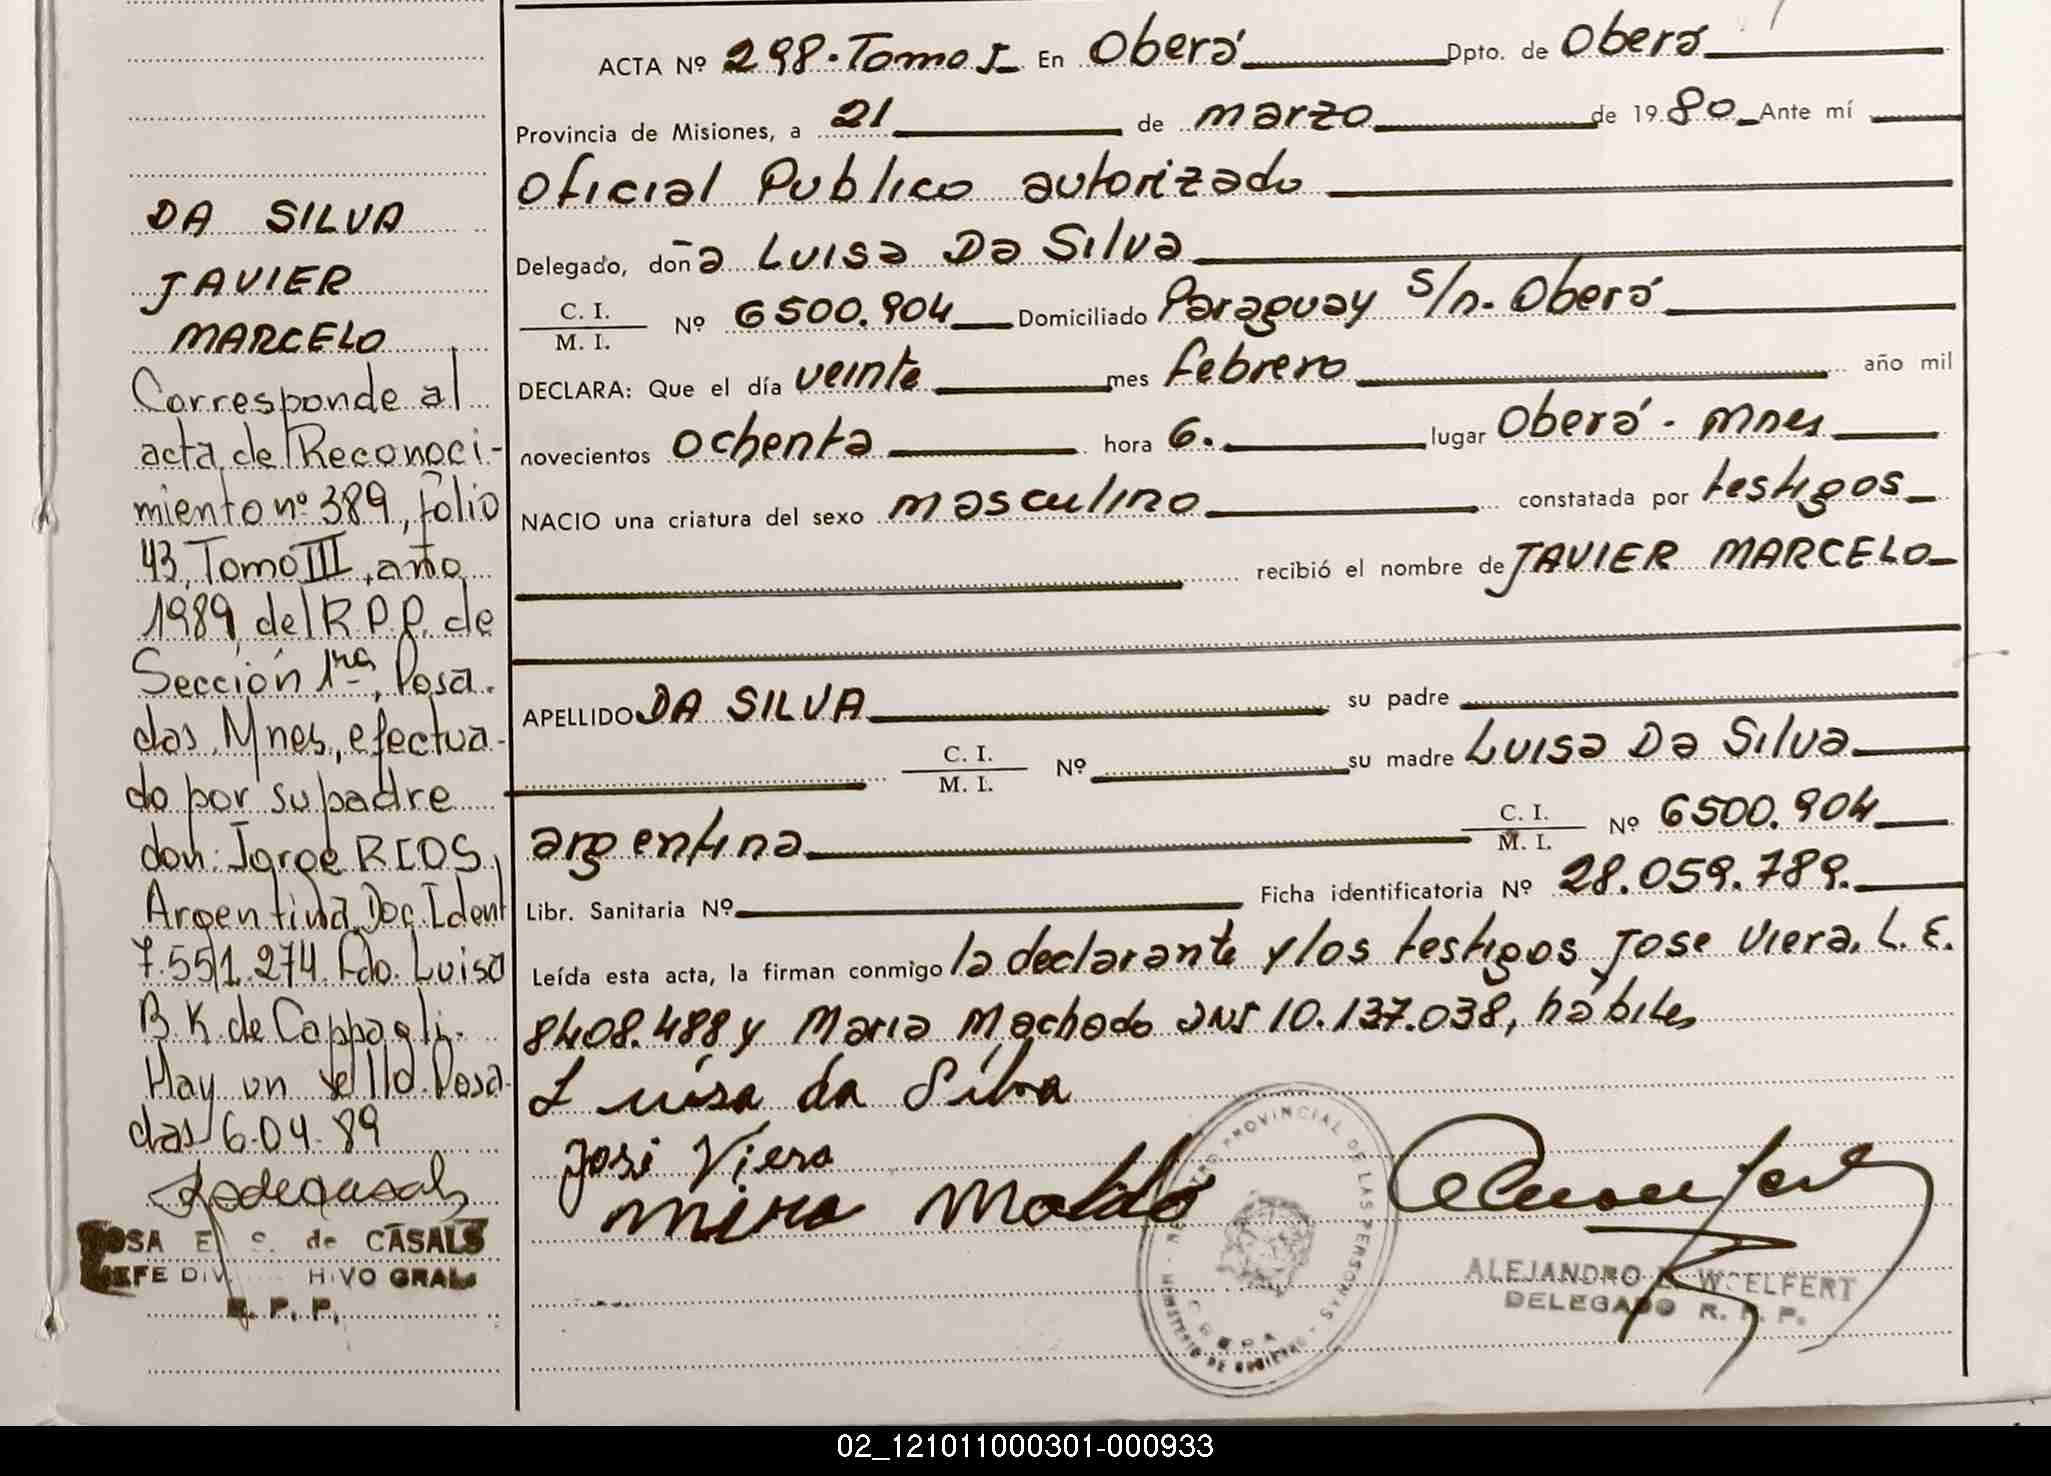 DA SILVA
JAVIER
MARCELO
Corresponde al
acta de Reconoci-
miento nº 389, folio
43, Tomo III, año
1989, del R.P.P. de
Sección 1ra, Posa-
das, Mnes, efectua-
do por su padre
don: Jorge RIOS,
Argentina, Doc. Ident
7.551.274. Fdo. Luisa
B. K. de Cappagli.
Hay un sello. Posa-
das 6-04-89
ROSA E. S. de CASALS
JEFE DIV. HIVO GRAL
R. P. P.
ACTA Nº 298-Tomo I En Oberá Dpto. de Oberá
Provincia de Misiones, a 21 de marzo de 1980 Ante mí
Oficial Publico autorizado
Delegado, doña Luisa Da Silva
C. I.
M. I. Nº 6500.904 Domiciliado Paraguay s/n. Oberá
DECLARA: Que el día veinte mes febrero año mil
novecientos ochenta hora 6. lugar Oberá - Mnes
NACIO una criatura del sexo masculino constatada por testigos
recibió el nombre de JAVIER MARCELO
APELLIDO DA SILVA su padre
C. I.
M. I. Nº su madre Luisa Da Silva
argentina C. I.
M. I. Nº 6500.904
Libr. Sanitaria Nº Ficha identificatoria Nº 28.059.789.
Leída esta acta, la firman conmigo la declarante y los testigos Jose Viera, L. E.
8408.488 y Maria Machado DNI 10.137.038, hábiles
Luisa da Silva
José Viera
ALEJANDRO WOELFERT
DELEGADO R. P. P.
REGISTRO PROVINCIAL DE LAS PERSONAS - MINISTERIO DE GOBIERNO
OBERA
02_121011000301-000933